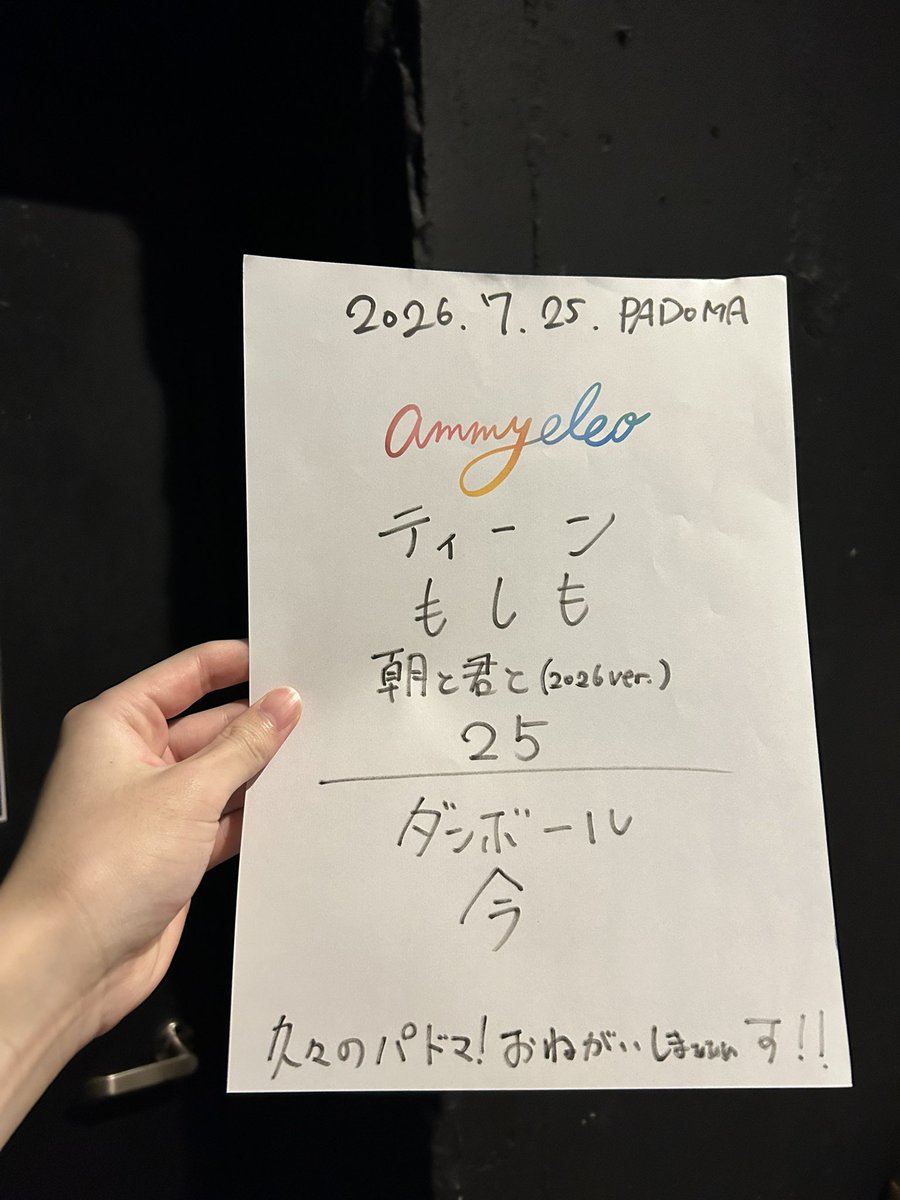 2026.7.25. PADOMA
ammyeleo
ティーン
もしも
朝と君と(2026ver.)
25
ダンボール
今
久々のパドマ!おねがいしまぃぃぃぃす!!